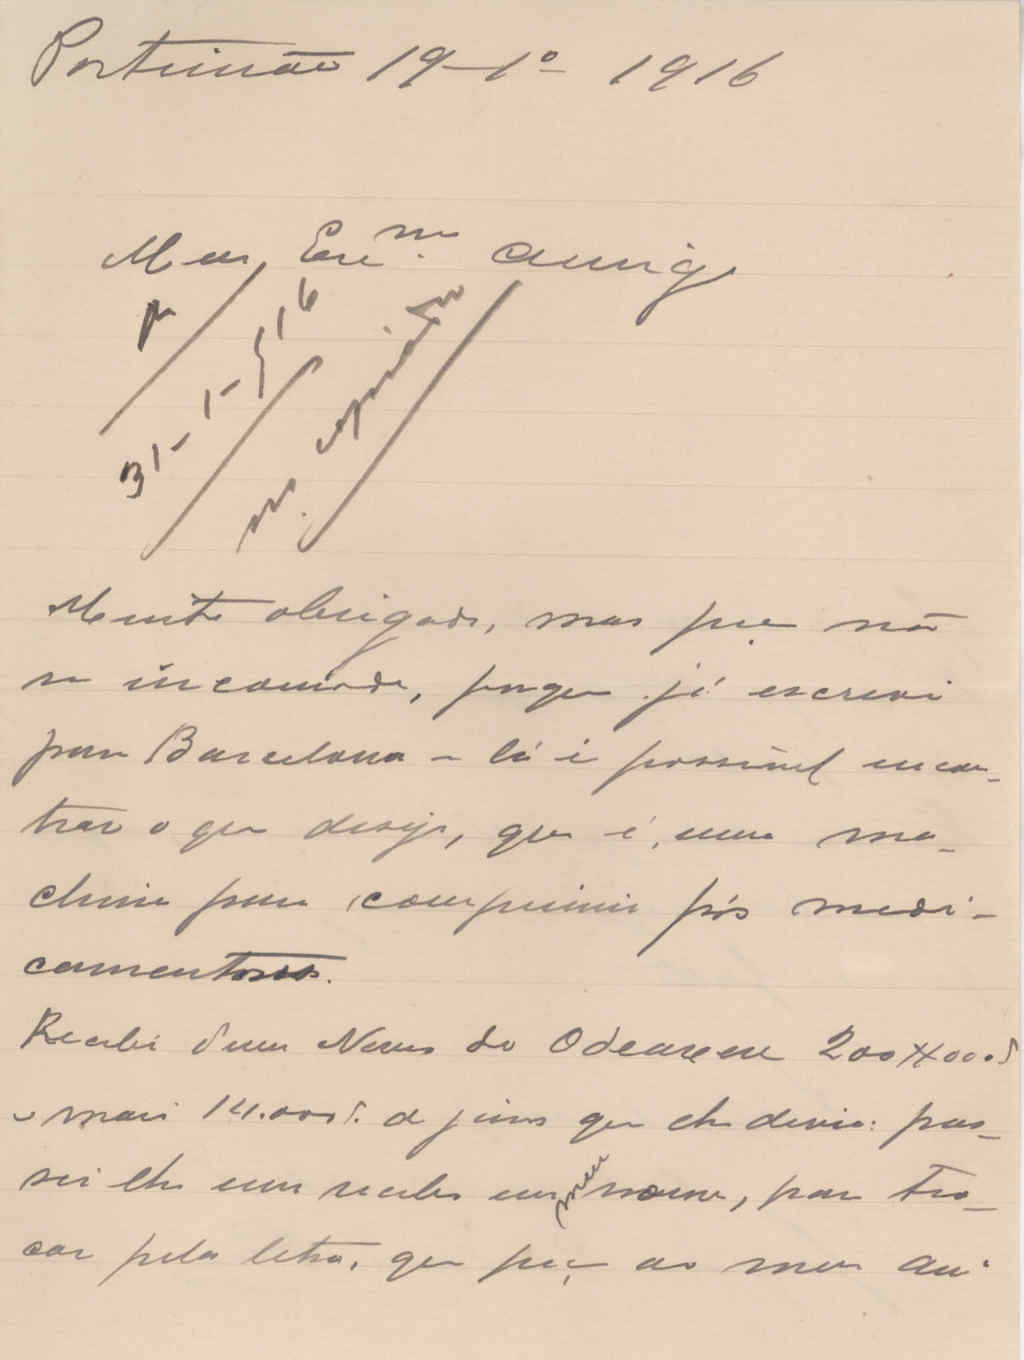 Portimão 19-1º-1916
Meu Exc.mo Amigo
R
31-1-916
Muito obrigado, mas peço não
se incomode, porque já escrevi
para Barcelona - lá é possivel encon-
trar o que desejo, que é, uma ma-
china para comprimir pós medi-
camentosos.
Recebi d'um Nunes de Odeaxere 200$000
e mais 14.000 de juros que elle devia: pas-
sei-lhe um recibo em meu nome, para tro-
car pela letra, que peço ao meu Am.